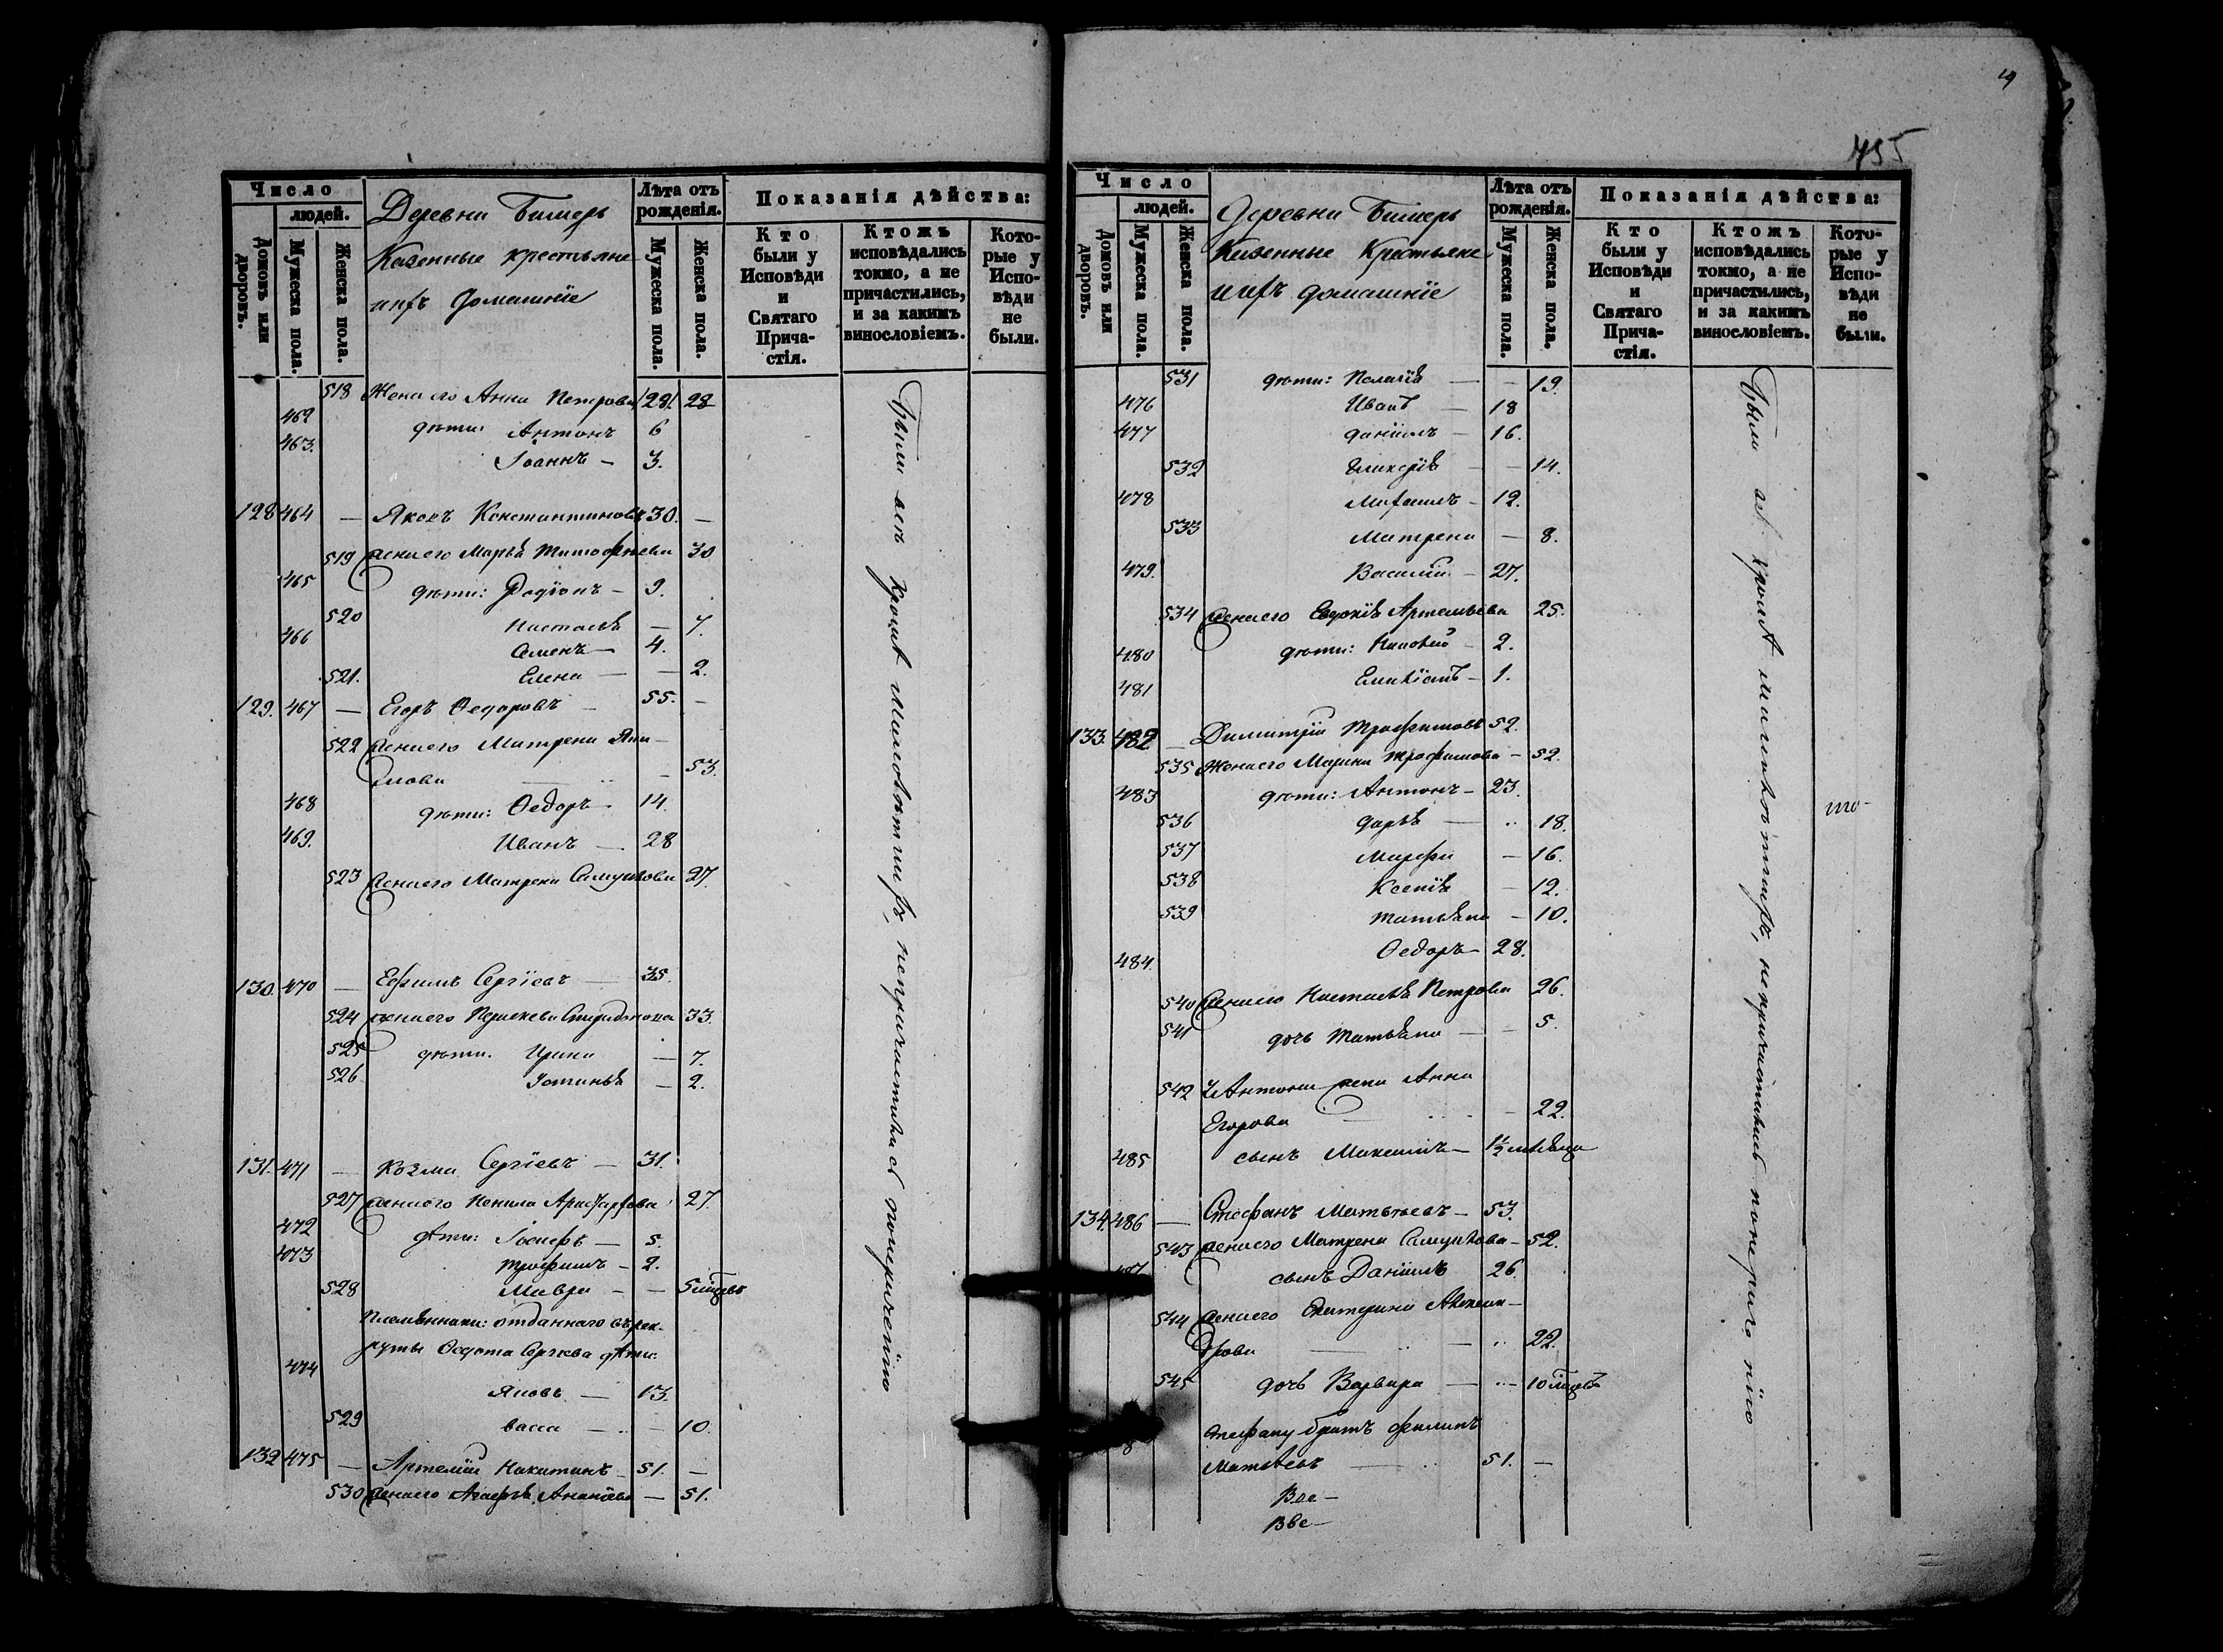 Число
людей.
Домовъ или дворовъ.
Мужеска пола.
Женска пола.
Деревни Бимерь
Казенные крестьяне
ихъ домашніе
Лѣта отъ рожденія.
Мужеска пола.
Женска пола.
Показанія дѣйства:
Кто были у Исповѣди и Святаго Прича-стія.
Ктожъ исповѣдались токмо, а не причастились, и за какимъ винословіемъ.
Кото-рые у Испо-вѣди не были.
518 Жена его Анна Петрова 28. 28
462 дѣти: Антонъ 6
463. Іоаннъ – 3.
128 464 — Яковъ Константиновъ 30. —
519 жена его Марья Тимофѣева 30
465 дѣти: Родіонъ – 9.
520 Настасья — 7.
466 Семенъ — 4.
521. Елена — — 2.
129. 467 — Егоръ Ѳедоровъ – 55. –
522 жена его Матрена
53.
468 дѣти: Ѳедоръ – 14.
469. Иванъ — 28
523 жена его Матрена Самуилова 27.
130. 470 — Ефимъ Сергіевъ — 35.
524 жена его Параскева Спиридонова 33.
525 дѣти: Ирина — 7.
526 Устинья — 2.
131. 471 — Козма Сергіевъ — 31.
527 жена его Ненила Аристархова 27.
472 дѣти: Іосифъ — 5.
473 Трофимъ – 2.
528 Мавра – — 5 мѣсцовъ
Племянники: отданнаго въ рек-
руты Ѳедота Сергѣева дѣти:
474 Яковъ — 13.
529 Васса — 10.
132 475 — Артемій Никитинъ – 51. —
530 жена его Агафья Ананіева — 51.
Были всѣ кромѣ малолѣтнихъ, непричастились понерачению
455
Число
людей.
Домовъ или дворовъ.
Мужеска пола.
Женска пола.
Деревни Бимерь
Казенные Крестьяне
ихъ домашніе
Лѣта отъ рожденія.
Мужеска пола.
Женска пола.
Показанія дѣйства:
Кто были у Исповѣди и Святаго Прича-стія.
Ктожъ исповѣдались токмо, а не причастились, и за какимъ винословіемъ.
Кото-рые у Испо-вѣди не были.
531 дѣти: Пелагія — – 19.
476 Иванъ — 18
477 Даніилъ – 16.
532 Гликерія – – 14.
478 Михаилъ – 12.
533 Матрена — 8.
479. Василій – 27.
534 жена его Евдокія Артемьева 25.
480 дѣти: – 2.
481 – 1.
133. 482 — Димитрій Трофимовъ 52.
535 Жена его Марина Трофимова – 52.
483 дѣти: Антонъ – 23.
536 Дарья — 18.
537 Марфа — 16.
538 Ксенія — 12.
539 Татьяна – 10.
484. Ѳедоръ – 28.
540 жена его Настасья Петрова 26.
541 дочь Татьяна — – 5.
542 У Антона жена Анна
Егорова — 22.
485 сынъ Максимъ – 1½ мѣсяца
134. 486 — Стефанъ Матвѣевъ – 53.
543 жена его Матрена Самуилова – 52.
487 сынъ Даніилъ 26.
544 жена его Екатерина Александ-
рова — 22.
545 дочь Варвара — 10 мѣсцовъ
8 Стефану братъ Филипъ
Матвѣевъ — 51. —
Были всѣ кромѣ малолѣтнихъ, непричастились понерачению